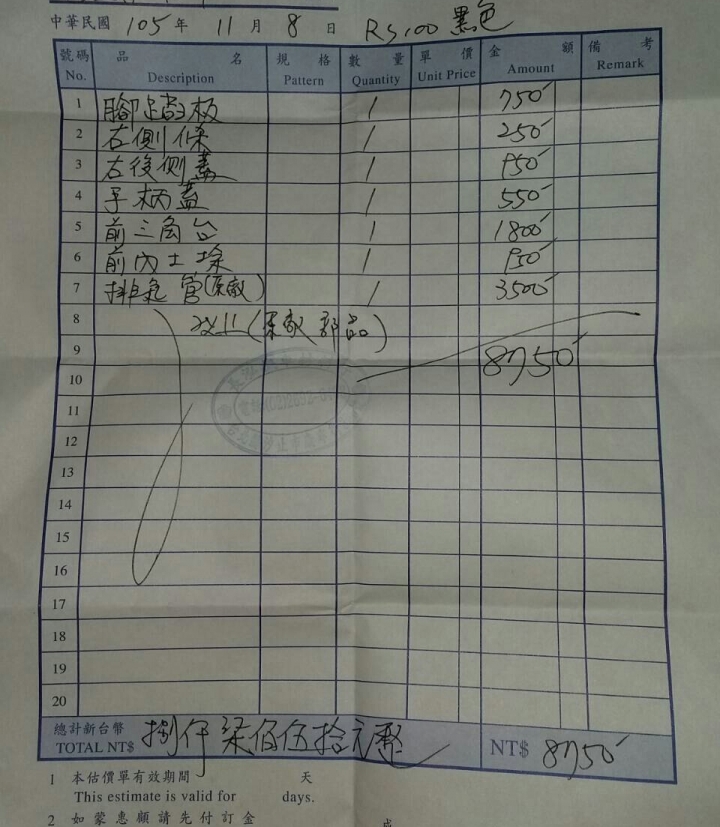 中華民國 105 年 11 月 8 日 RS100 黑色
號碼 品名 規格 數量 單價 金額 備考
No. Description Pattern Quantity Unit Price Amount Remark
1 腳踏板 1 750
2 右側條 1 250
3 右後側蓋 1 950
4 手柄蓋 1 550
5 前三角台 1 1800
6 前內土除 1 950
7 排氣管(原廠) 1 3500
8 以上(原廠部品)
9 8750
10
11
12
13
14
15
16
17
18
19
20
總計新台幣
TOTAL NT$ 捌仟柒佰伍拾元整 NT$ 8750
1 本估價單有效期間 天
This estimate is valid for days.
2 如蒙惠顧請先付訂金 成